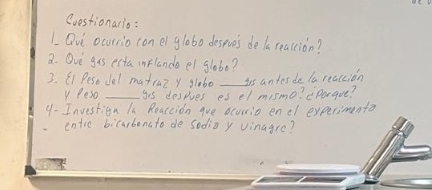 Cuestionario:
1. Qué ocurrio con el globo despues de la reacción?
2. Qué gas esta inflando el globo?
3. El Peso del matraz y globo ____ grs antes de la reacción
y Peso ____ grs despues es el mismo? ¿Porque?
4- Investiga la Reacción que ocurrio en el experimento
entre bicarbonato de Sodio y vinagre?